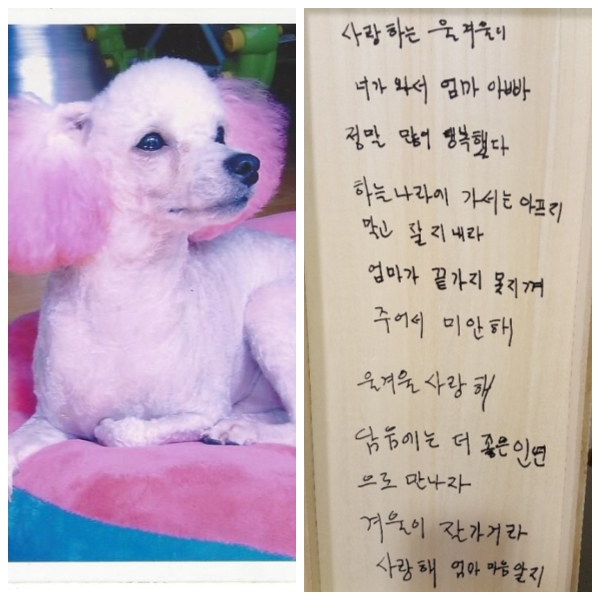 사랑하는 울겨울이
너가 와서 엄마 아빠
정말 많이 행복했다
하늘나라에 가서는 아프지
말고 잘 지내라
엄마가 끝까지 못지껴
주어서 미안해
울겨울 사랑해
담음에는 더 좋은 인연
으로 만나자
겨울이 잔가거라
사랑해 엄마 마음 알지